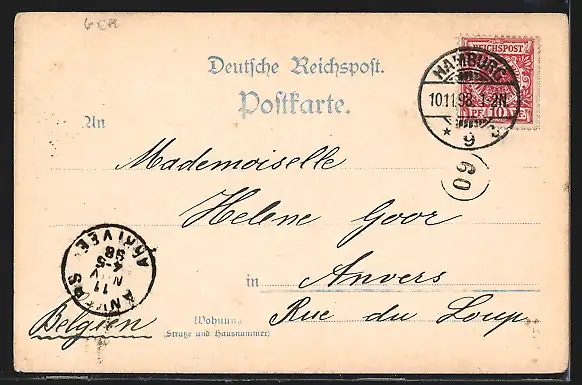 GER
Deutsche Reichspost.
Postkarte.
REICHSPOST
PF 10 PF
HAMBURG
10.11.98. 1-2N
* 9 a
60
An
Mademoiselle
Helene Goor
in Anvers
Wohnung
(Straße und Hausnummer)
Rue du Loup
Belgien
ANVERS
11 NOV
4-5
98
ARRIVEE